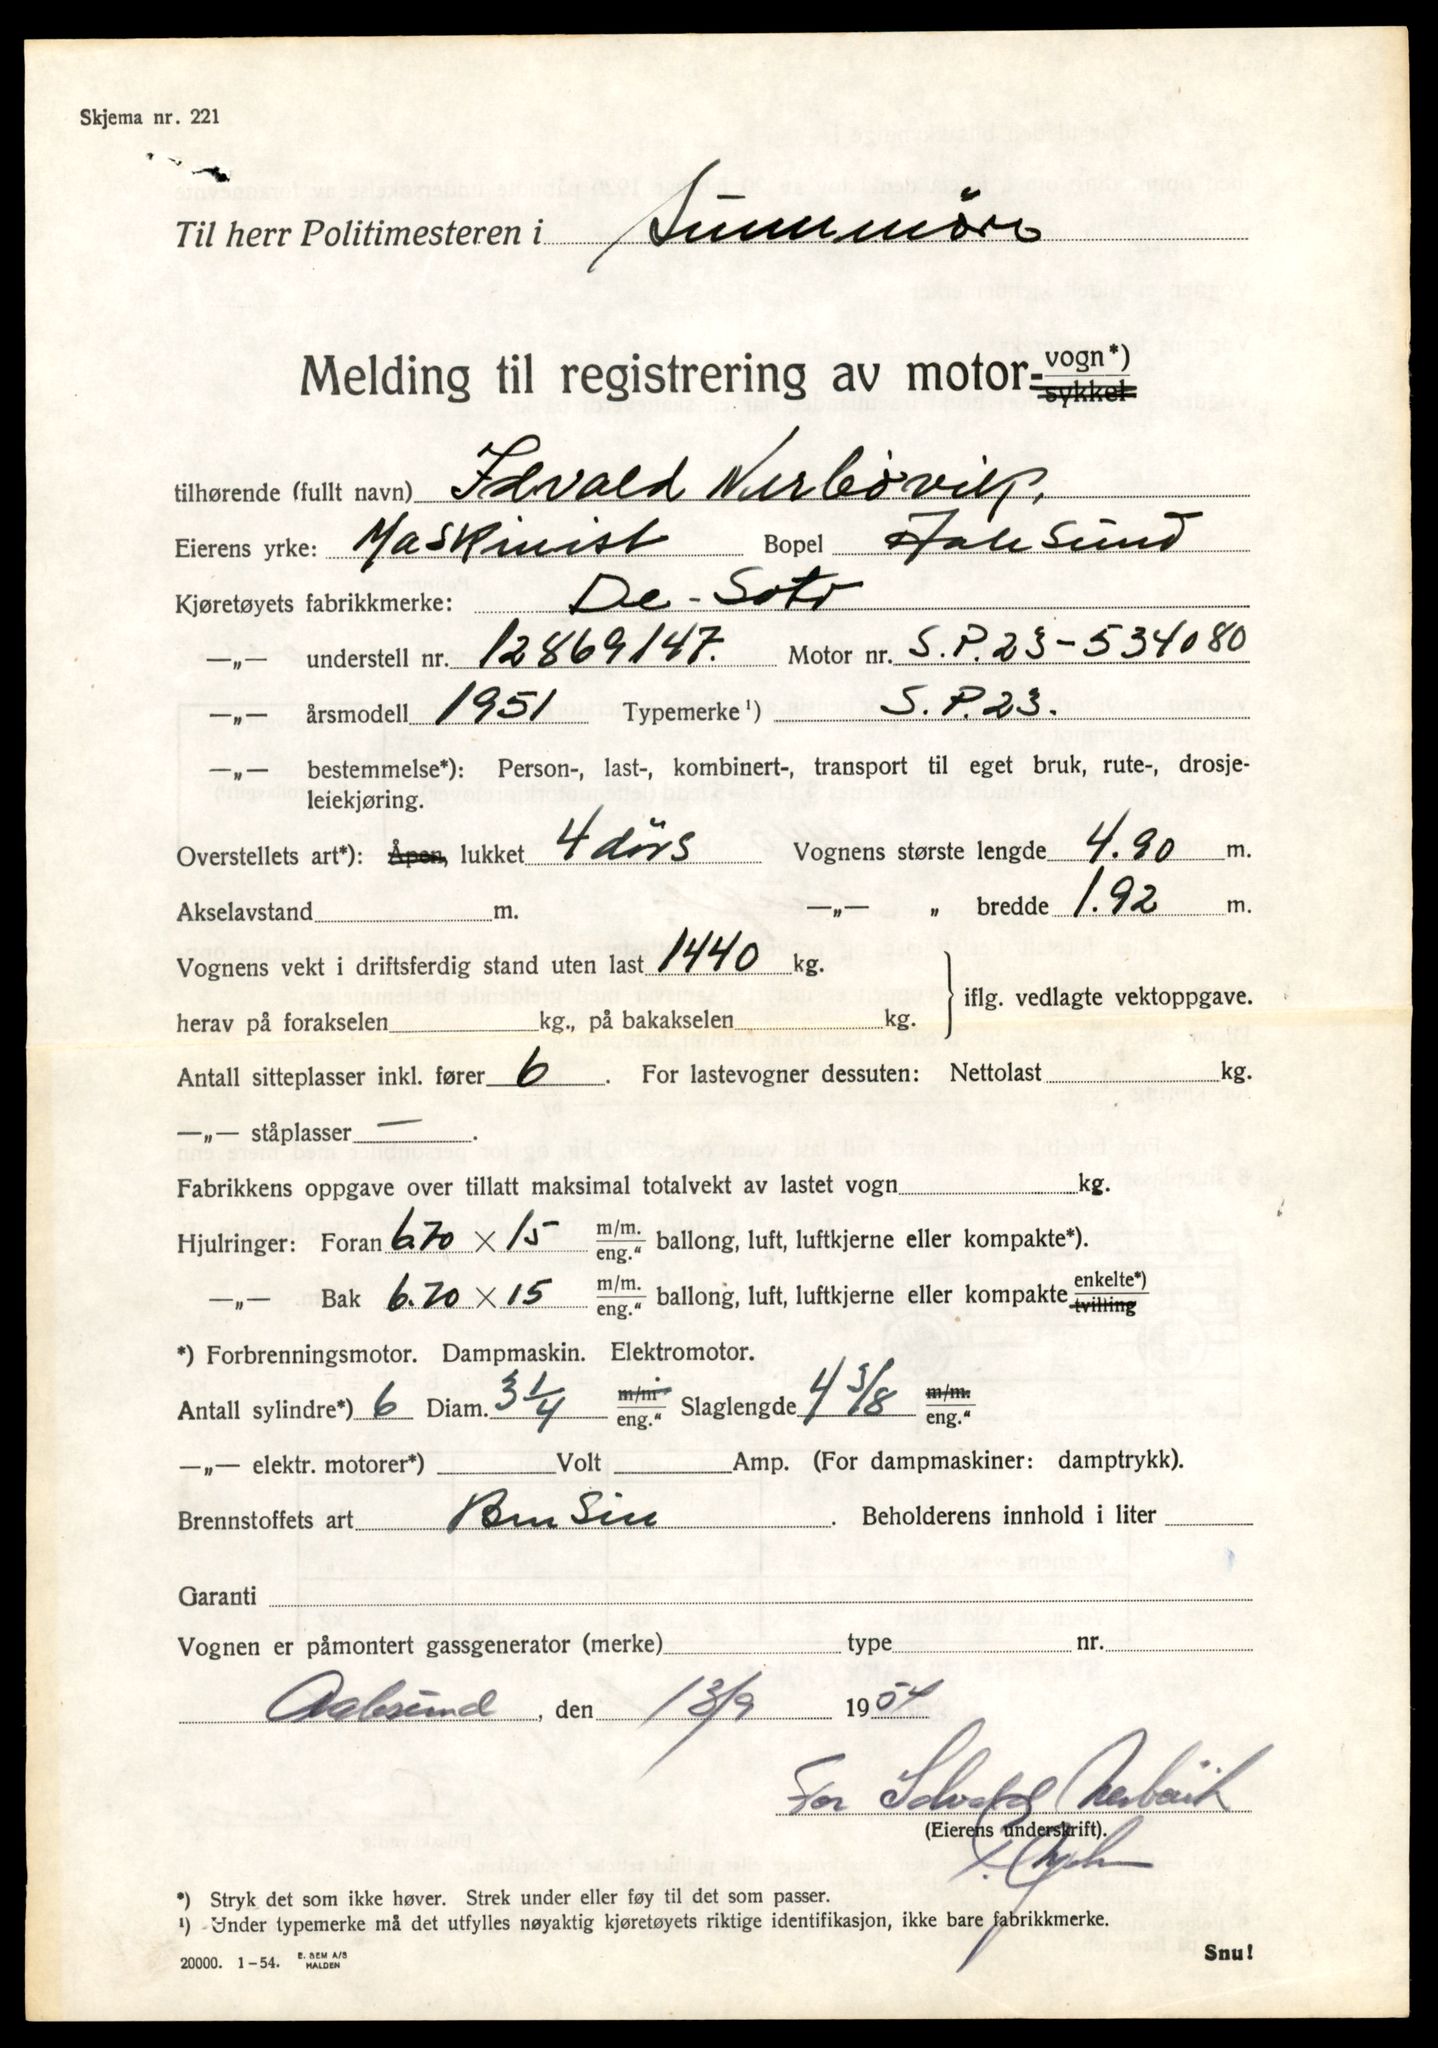 Skjema nr. 221
Til herr Politimesteren i Sunnmöre
Melding til registrering av motor- vogn*) sykkel
tilhørende (fullt navn) Idvald Nerbøvik,
Eierens yrke: Maskinist Bopel Aalesund
Kjøretøyets fabrikkmerke: De-Soto
—„— understell nr. 12869147. Motor nr. S.P.23-534080
—„— årsmodell 1951 Typemerke¹) S.P.23.
—„— bestemmelse*): Person-, last-, kombinert-, transport til eget bruk, rute-, drosje-
leiekjøring.
Overstellets art*): Åpen, lukket 4 dörs Vognens største lengde 4.90 m.
Akselavstand m. —„— „ bredde 1.92 m.
Vognens vekt i driftsferdig stand uten last 1440 kg.
iflg. vedlagte vektoppgave.
herav på forakselen kg., på bakakselen kg.
Antall sitteplasser inkl. fører 6 . For lastevogner dessuten: Nettolast kg.
—„— ståplasser — .
Fabrikkens oppgave over tillatt maksimal totalvekt av lastet vogn kg.
Hjulringer: Foran 6.70 × 15 m/m. eng.“ ballong, luft, luftkjerne eller kompakte*).
—„— Bak 6.70 × 15 m/m. eng.“ ballong, luft, luftkjerne eller kompakte enkelte*) tvilling
*) Forbrenningsmotor. Dampmaskin. Elektromotor.
Antall sylindre*) 6 Diam. 3 1/4 m/m eng.“ Slaglengde 4 3/8 m/m. eng.“
—„— elektr. motorer*) Volt Amp. (For dampmaskiner: damptrykk).
Brennstoffets art Bensin . Beholderens innhold i liter
Garanti
Vognen er påmontert gassgenerator (merke) type nr.
Aalesund, den 13/9 1954
For Idvald Nerbøvik
(Eierens underskrift).
*) Stryk det som ikke høver. Strek under eller føy til det som passer.
¹) Under typemerke må det utfylles nøyaktig kjøretøyets riktige identifikasjon, ikke bare fabrikkmerke.
20000. 1-54. E. SEM A/S HALDEN
Snu!